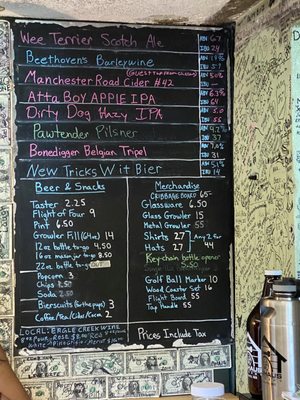 Wee Terrier Scotch Ale ABV 6.7
IBU 24
Beethoven's Barleywine ABV
IBU 57
Manchester Road Cider #42 (Guest Tap from Chevin) ABV
IBU
Atta Boy APPLE IPA ABV 6.3%
IBU 64
Dirty Dog Hazy IPA ABV 5.0
IBU 55
Pawtender Pilsner ABV
IBU 37
Bonedigger Belgian Tripel ABV
IBU 31
New Tricks Wit Bier ABV 5.1%
IBU 14
Beer & Snacks
Taster 2.25
Flight of Four 9
Pint 6.50
Growler Fill (64oz) 14
12oz bottle to-go 4.50
16oz mason jar to-go 8.50
22oz bottle to-go
Popcorn 3
Chips 2.50
Soda
Bierscuits (for the pups) 3
Coffee/Tea/Cider/Cocoa 2
Merchandise
CRIBBAGE BOARD 65
Glassware 6.50
Glass Growler 15
Metal Growler 55
Shirts 27
Hats 27
Any 2 for 44
Key-chain bottle opener
5.50
Golf Ball Marker 10
Wood Coaster Set 16
Flight Board 55
Tap Handle 55
LOCAL: EAGLE CREEK WINE
Prices Include Tax